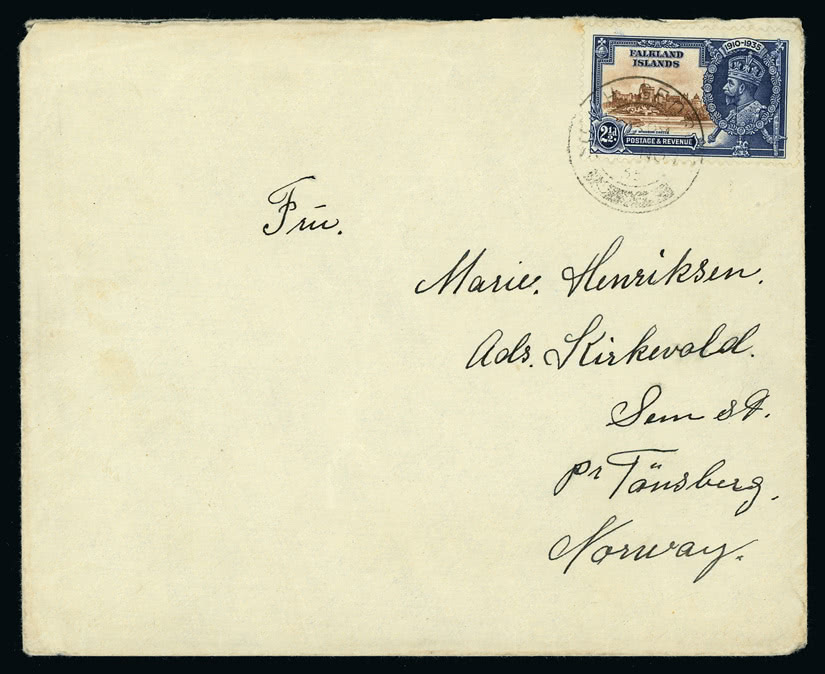 1910-1935
FALKLAND
ISLANDS
2½d
POSTAGE & REVENUE
Frū.
Marie. Henriksen.
Ads. Kirkevold.
Sem st.
pr Tönsberg,
Norway.